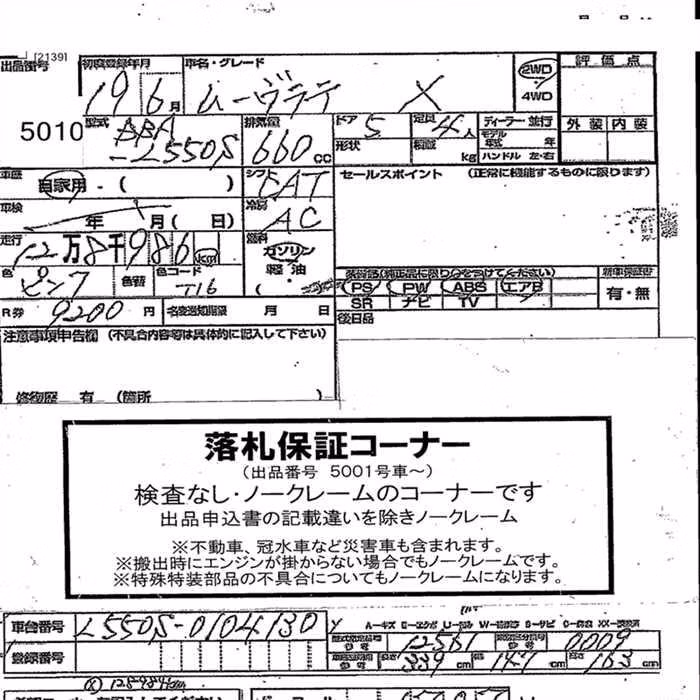 [2139]
出品番号 初度登録年月 車名・グレード 2WD 評価点
5010 19 6月 ムーヴラテ X 4WD
型式 DBA -L550S 排気量 660 cc ドア 5 定員 4人 ディーラー 並行 外装 内装
形状 積載 kg モデル年式 年
ハンドル 左・右
車歴 自家用・( ) シフト CAT セールスポイント (正常に機能するものに限ります)
車検 年 月( 日) 冷房 AC
走行 12万8千986km 燃料 ガソリン
軽油
色 ピンク 色替 色コード T16 ( 装備品(純正品に限り○をつけてください) 新車保証書
PS PW ABS エアB 有・無
R券 9200円 名変通知期限 月 日 SR ナビ TV
注意事項申告欄 (不具合内容等は具体的に記入して下さい) 後日品
修復歴 有 (箇所 )
落札保証コーナー
(出品番号 5001号車~)
検査なし・ノークレームのコーナーです
出品申込書の記載違いを除きノークレーム
※不動車、冠水車など災害車も含まれます。
※搬出時にエンジンが掛からない場合でもノークレームです。
※特殊特装部品の不具合についてもノークレームになります。
車台番号 L550S-0104130
型式指定番号 12561 類別区分番号 0009
登録番号 339cm 147cm 163cm